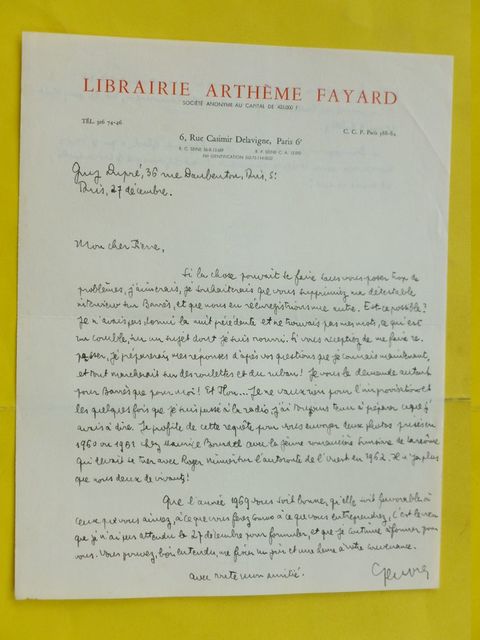 LIBRAIRIE ARTHÈME FAYARD
SOCIÉTÉ ANONYME AU CAPITAL DE 425.000 F
TÉL. 326 74-26
C. C. P. Paris 388-84
6, Rue Casimir Delavigne, Paris 6e
Guy Dupré, 36 rue Daubenton, Paris, 5e
Paris, 27 décembre.
Mon cher Pierre,
Si la chose pouvait se faire sans vous poser trop de
problèmes, j'aimerais, je souhaiterais que vous supprimiez ma détestable
interview sur Barrès, et que nous en réenregistrions une autre. Est-ce possible?
Je n'avais pas dormi la nuit précédente et ne trouvais pas mes mots, ce qui est
un comble, sur un sujet dont je suis nourri. Si vous acceptiez de me faire re-
passer, je préparerais mes réponses d'après vos questions que je connais maintenant,
et tout marcherait sur des roulettes et du ruban! Je vous le demande autant
pour Barrès que pour moi! Et Plon... Je ne vaux rien pour l'improvisation et
les quelques fois que je suis passé à la radio, j'ai toujours tenu à préparer ce que j'
avais à dire. Je profite de cette requête pour vous envoyer deux photos prises en
1960 ou 1961 chez Maurice Bourdel avec la jeune romancière
qui devait se tuer avec Roger Nimier sur l'autoroute de l'ouest en 1962. Il n'y a plus
que nous deux de vivants!
Que l'année 1969 vous soit bonne, qu'elle soit favorable à
ceux que vous aimez, à ce que vous ferez comme à ce que vous entreprendrez, c'est le vœu
que je n'ai pas attendu le 27 décembre pour formuler, et que je continue à former pour
vous. Vous pouvez, bien entendu, me fixer un jour et une heure à votre convenance.
avec toute mon amitié.